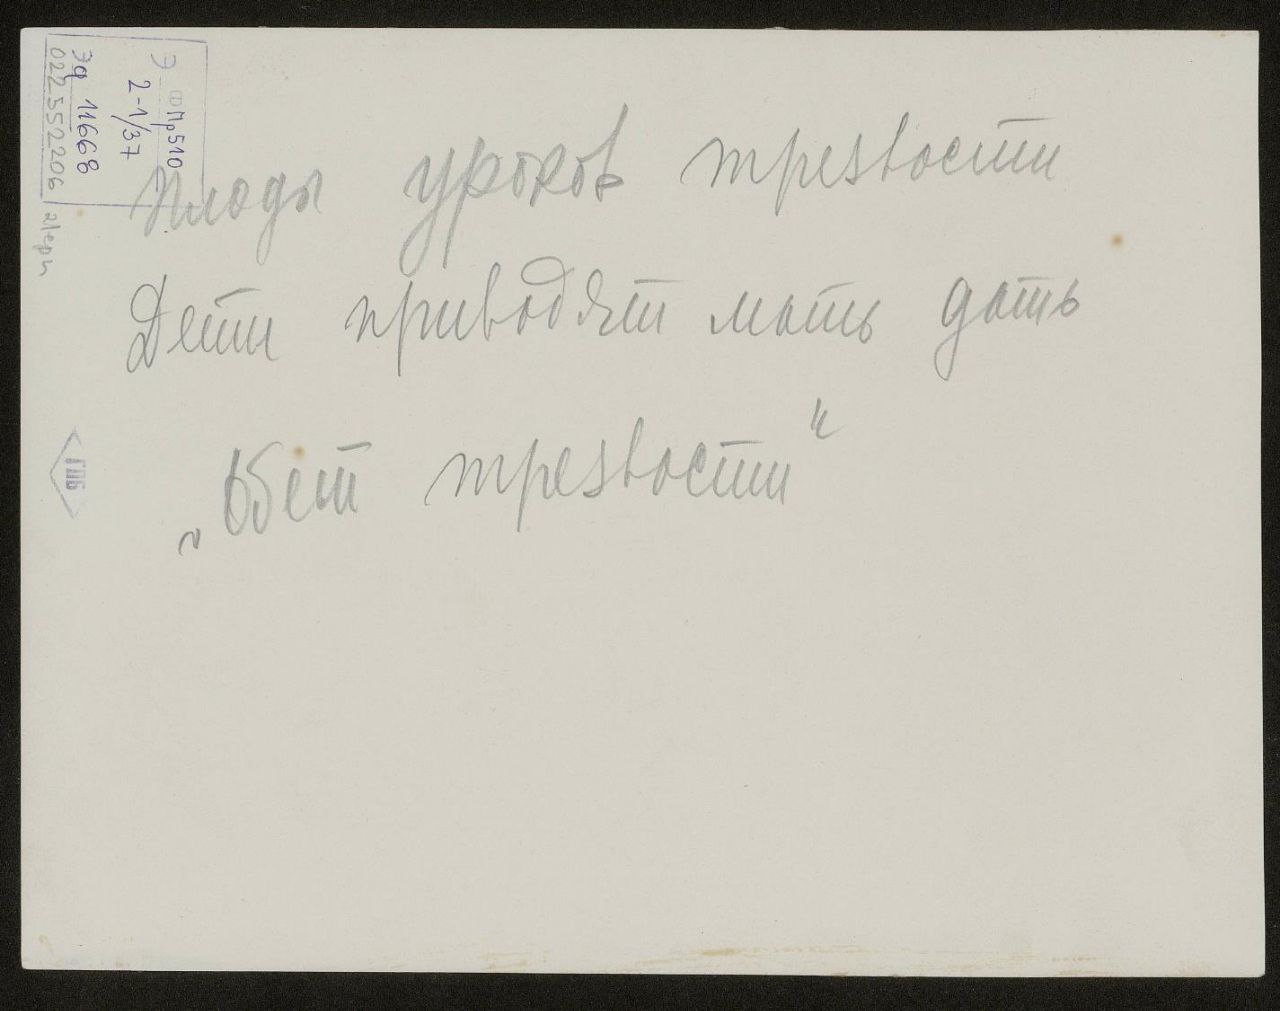 Плоды уроков трезвости
Дети приводят мать дать
„Обет трезвости"
Э ФПр510
2-1/37
Эф 11668
022552206
ГПБ